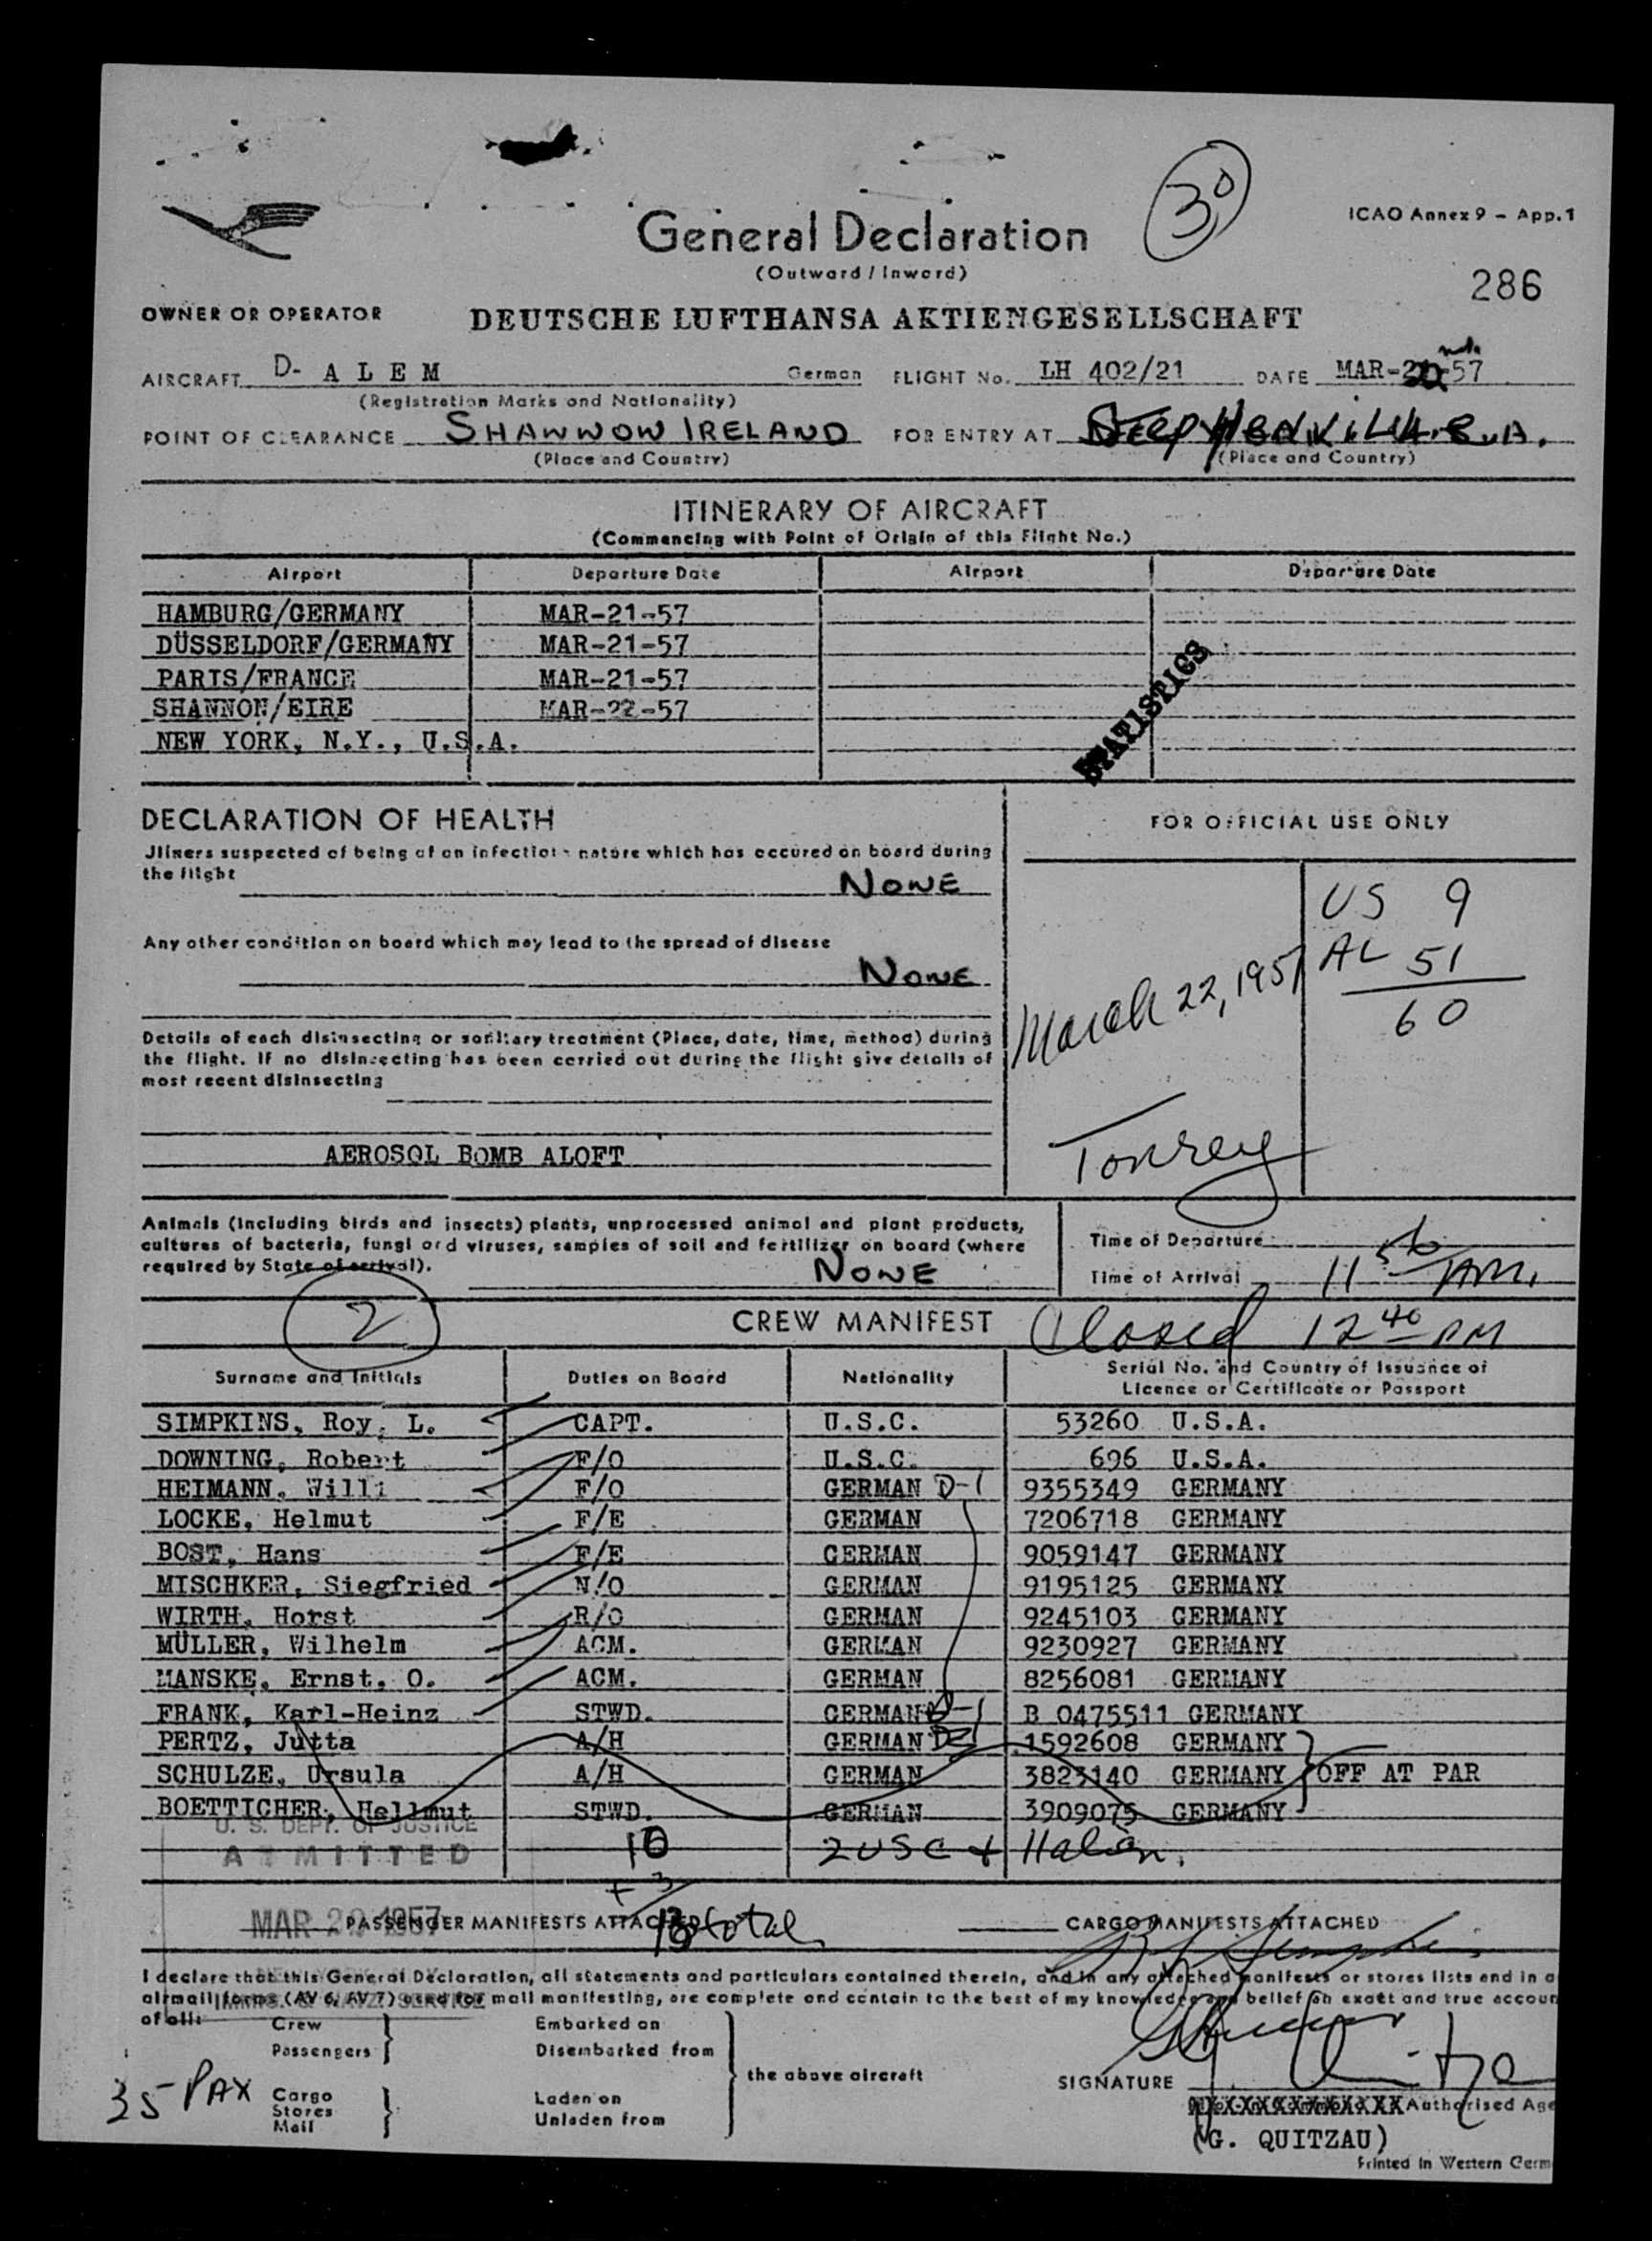 30
General Declaration
ICAO Annex 9 – App. 1
(Outward / Inward)
286
OWNER OR OPERATOR DEUTSCHE LUFTHANSA AKTIENGESELLSCHAFT
AIRCRAFT D- A L E M German FLIGHT No. LH 402/21 DATE MAR-22-57
(Registration Marks and Nationality)
POINT OF CLEARANCE SHANNON IRELAND FOR ENTRY AT
(Place and Country) (Place and Country)
ITINERARY OF AIRCRAFT
(Commencing with Point of Origin of this Flight No.)
Airport Departure Date Airport Departure Date
HAMBURG/GERMANY MAR-21-57
DÜSSELDORF/GERMANY MAR-21-57
PARIS/FRANCE MAR-21-57
SHANNON/EIRE MAR-22-57
NEW YORK, N.Y., U.S.A.
STATISTICS
DECLARATION OF HEALTH
Jliners suspected of being of an infectious nature which has occured on board during
the flight
NONE
Any other condition on board which may lead to the spread of disease
NONE
Details of each disinsecting or sanitary treatment (Place, date, time, method) during
the flight. If no disinsecting has been carried out during the flight give details of
most recent disinsecting
AEROSOL BOMB ALOFT
FOR OFFICIAL USE ONLY
US 9
AL 51
60
March 22, 1957
Animals (including birds and insects) plants, unprocessed animal and plant products,
cultures of bacteria, fungi and viruses, samples of soil and fertilizer on board (where
required by State of arrival).
NONE
Time of Departure
Time of Arrival 11 56 AM.
2
CREW MANIFEST Closed 12 40 PM
Surname and Initials Duties on Board Nationality Serial No. and Country of Issuance of
Licence or Certificate or Passport
SIMPKINS, Roy, L. CAPT. U.S.C. 53260 U.S.A.
DOWNING, Robert F/O U.S.C. 696 U.S.A.
HEIMANN, Willi F/O GERMAN D-1 9355349 GERMANY
LOCKE, Helmut F/E GERMAN 7206718 GERMANY
BOST, Hans F/E GERMAN 9059147 GERMANY
MISCHKER, Siegfried N/O GERMAN 9195125 GERMANY
WIRTH, Horst R/O GERMAN 9245103 GERMANY
MÜLLER, Wilhelm ACM. GERMAN 9230927 GERMANY
MANSKE, Ernst, O. ACM. GERMAN 8256081 GERMANY
FRANK, Karl-Heinz STWD. GERMAN D-1 B 0475511 GERMANY
PERTZ, Jutta A/H GERMAN 1592608 GERMANY
SCHULZE, Ursula A/H GERMAN 3823140 GERMANY OFF AT PAR
BOETTICHER, Hellmut STWD. GERMAN 3909075 GERMANY
U. S. DEPT. OF JUSTICE
ADMITTED
10 2 USC +
+ 3
13 total
MAR 22 1957
PASSENGER MANIFESTS ATTACHED CARGO MANIFESTS ATTACHED
I declare that this General Declaration, all statements and particulars contained therein, and in any attached manifests or stores lists and in a
airmail forms (AV 6, AV 7) used for mail manifesting, are complete and contain to the best of my knowledge and belief an exact and true accoun
of all:
IMMIG. & NATZ. SERVICE
Crew Embarked on
Passengers Disembarked from
the above aircraft
35 PAX
Cargo Laden on
Stores
Mail Unladen from
SIGNATURE
Authorised Age
(G. QUITZAU)
Printed in Western Germ